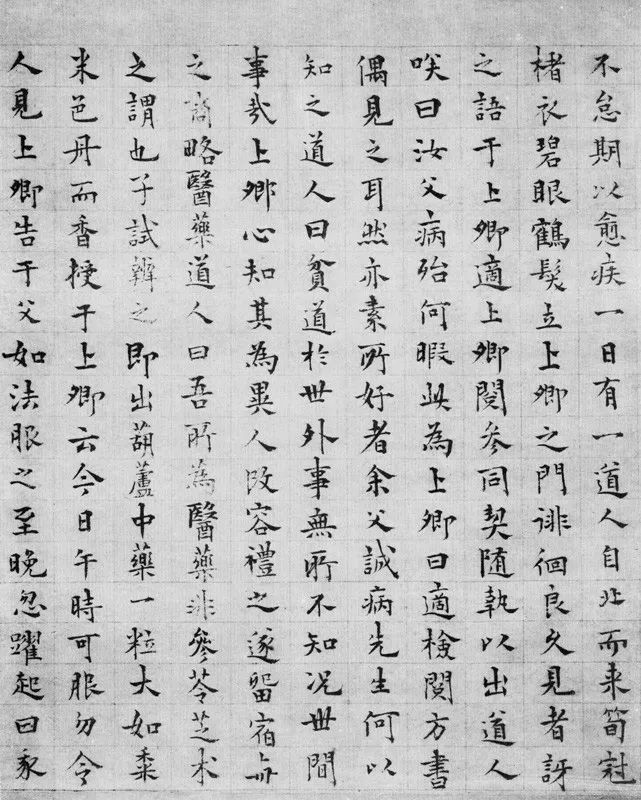 不怠期以愈疾一日有一道人自北而来筍冠
楮衣碧眼鶴髮立上卿之門誹徊良久見者訝
之語于上卿適上卿閱參同契随執以出道人
咲曰汝父病殆何暇此為上卿曰適檢閱方書
偶見之耳然亦素所好者余父誠病先生何以
知之道人曰貧道於世外事無所不知况世間
事哉上卿心知其為異人改容禮之遂留宿与
之商略醫藥道人曰吾所為醫藥非參苓芝术
之謂也子試辨之即出葫蘆中藥一粒大如黍
米色丹而香授于上卿云今日午時可服勿令
人見上卿告于父如法服之至晚忽躍起曰我